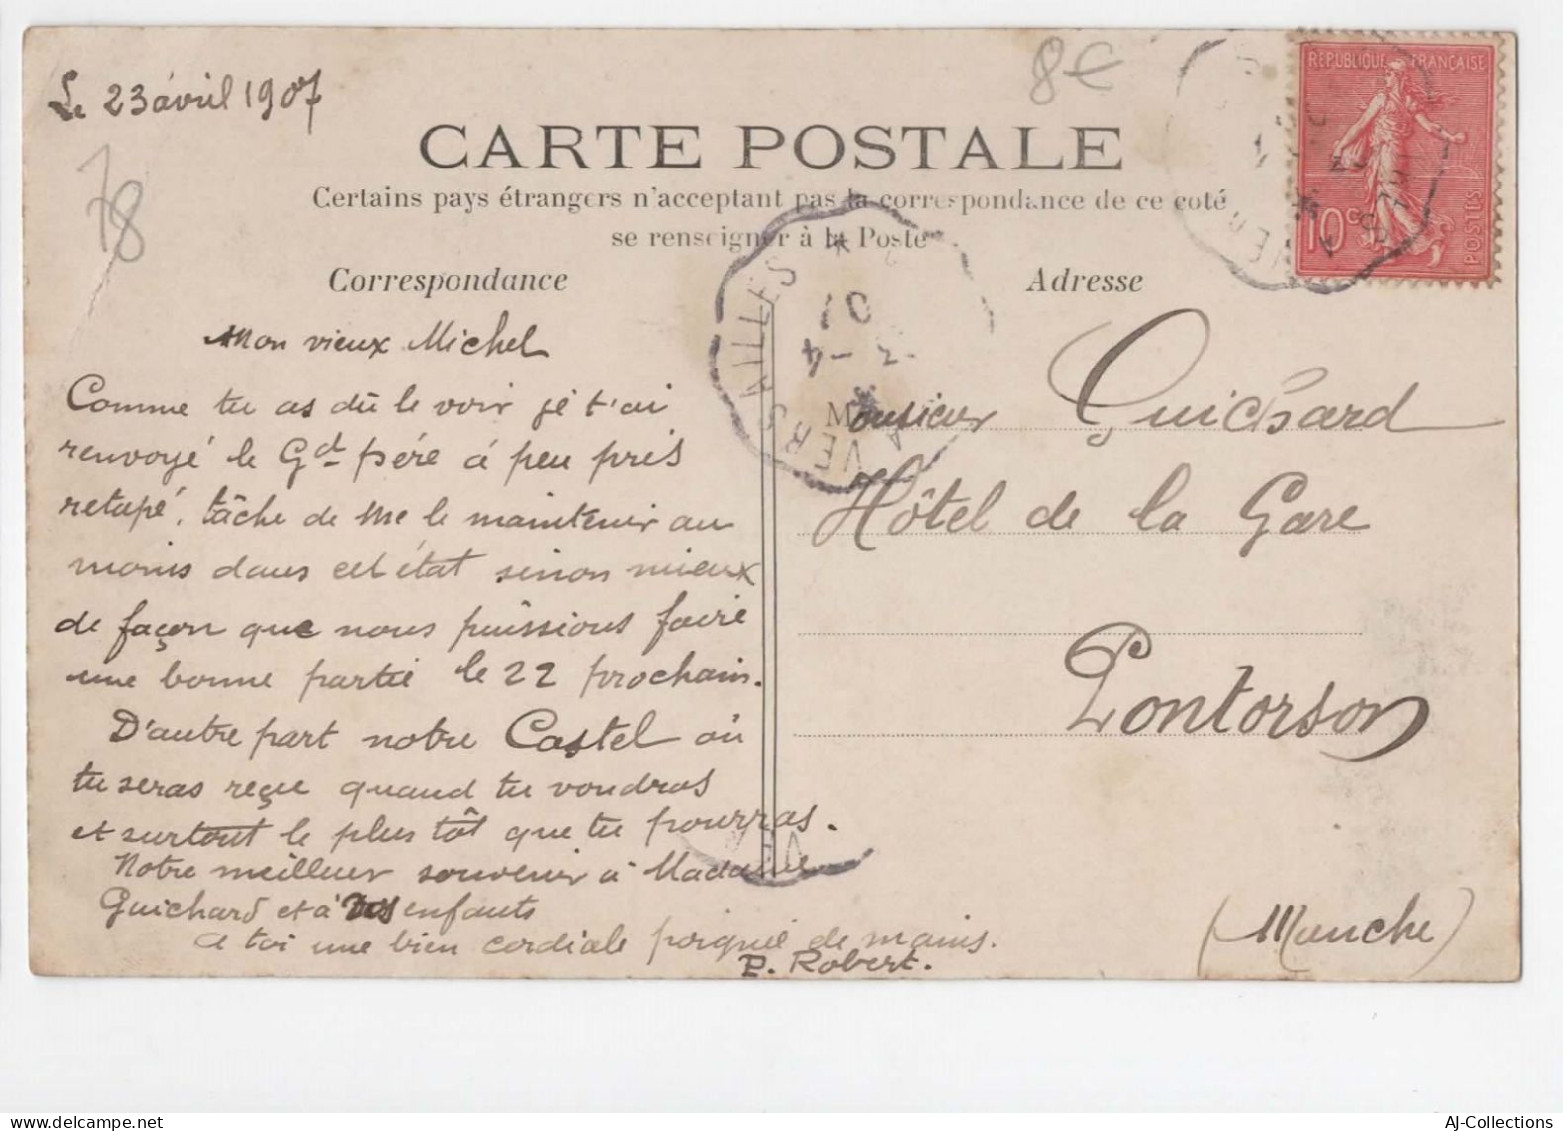 Le 23 avril 1907
8€
78
CARTE POSTALE
Certains pays étrangers n'acceptant pas la correspondance de ce coté
se renseigner à la Poste
Correspondance
Adresse
RÉPUBLIQUE FRANÇAISE
10c
POSTES
VERSAILLES
3-4
07
Mon vieux Michel
Comme tu as dû le voir je t'ai
renvoyé le Gd père à peu près
retapé, tâche de me le maintenir au
moins dans cet état sinon mieux
de façon que nous puissions faire
une bonne partie le 22 prochain.
D'autre part notre Castel où
tu seras reçu quand tu voudras
et surtout le plus tôt que tu pourras.
Notre meilleur souvenir à Madame
Guichard et à vos enfants
a toi une bien cordiale poignée de mains.
P. Robert.
Monsieur Guichard
Hôtel de la Gare
Pontorson
(Manche)
AJ-Collections